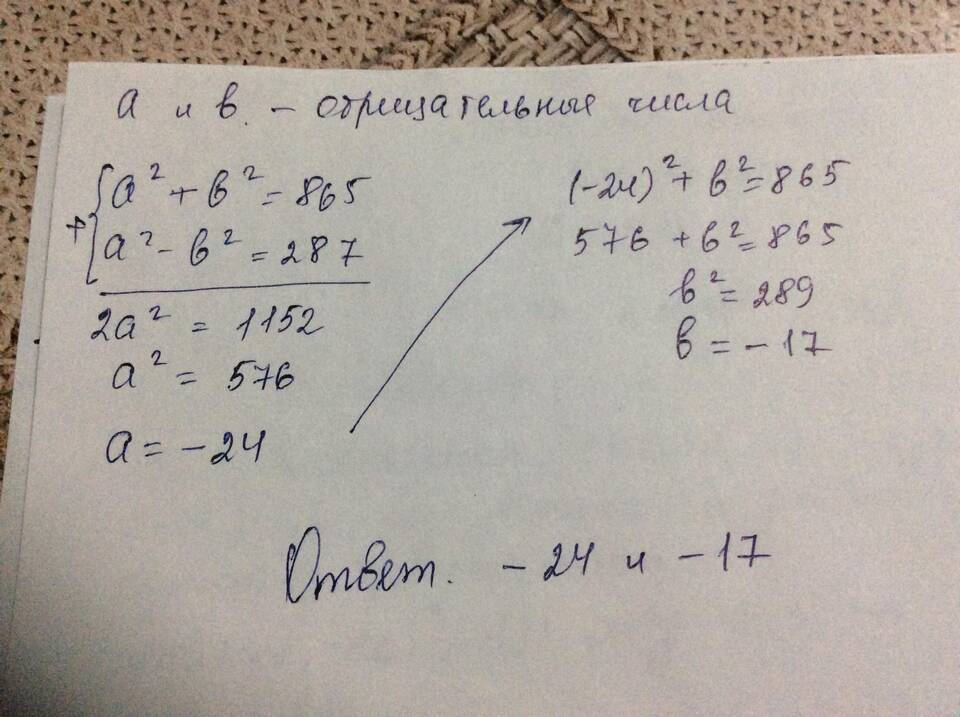 a и в - отрицательные числа
+ { a² + в² = 865
a² - в² = 287
2a² = 1152
a² = 576
a = -24
(-24)² + в² = 865
576 + в² = 865
в² = 289
в = -17
Ответ. -24 и -17